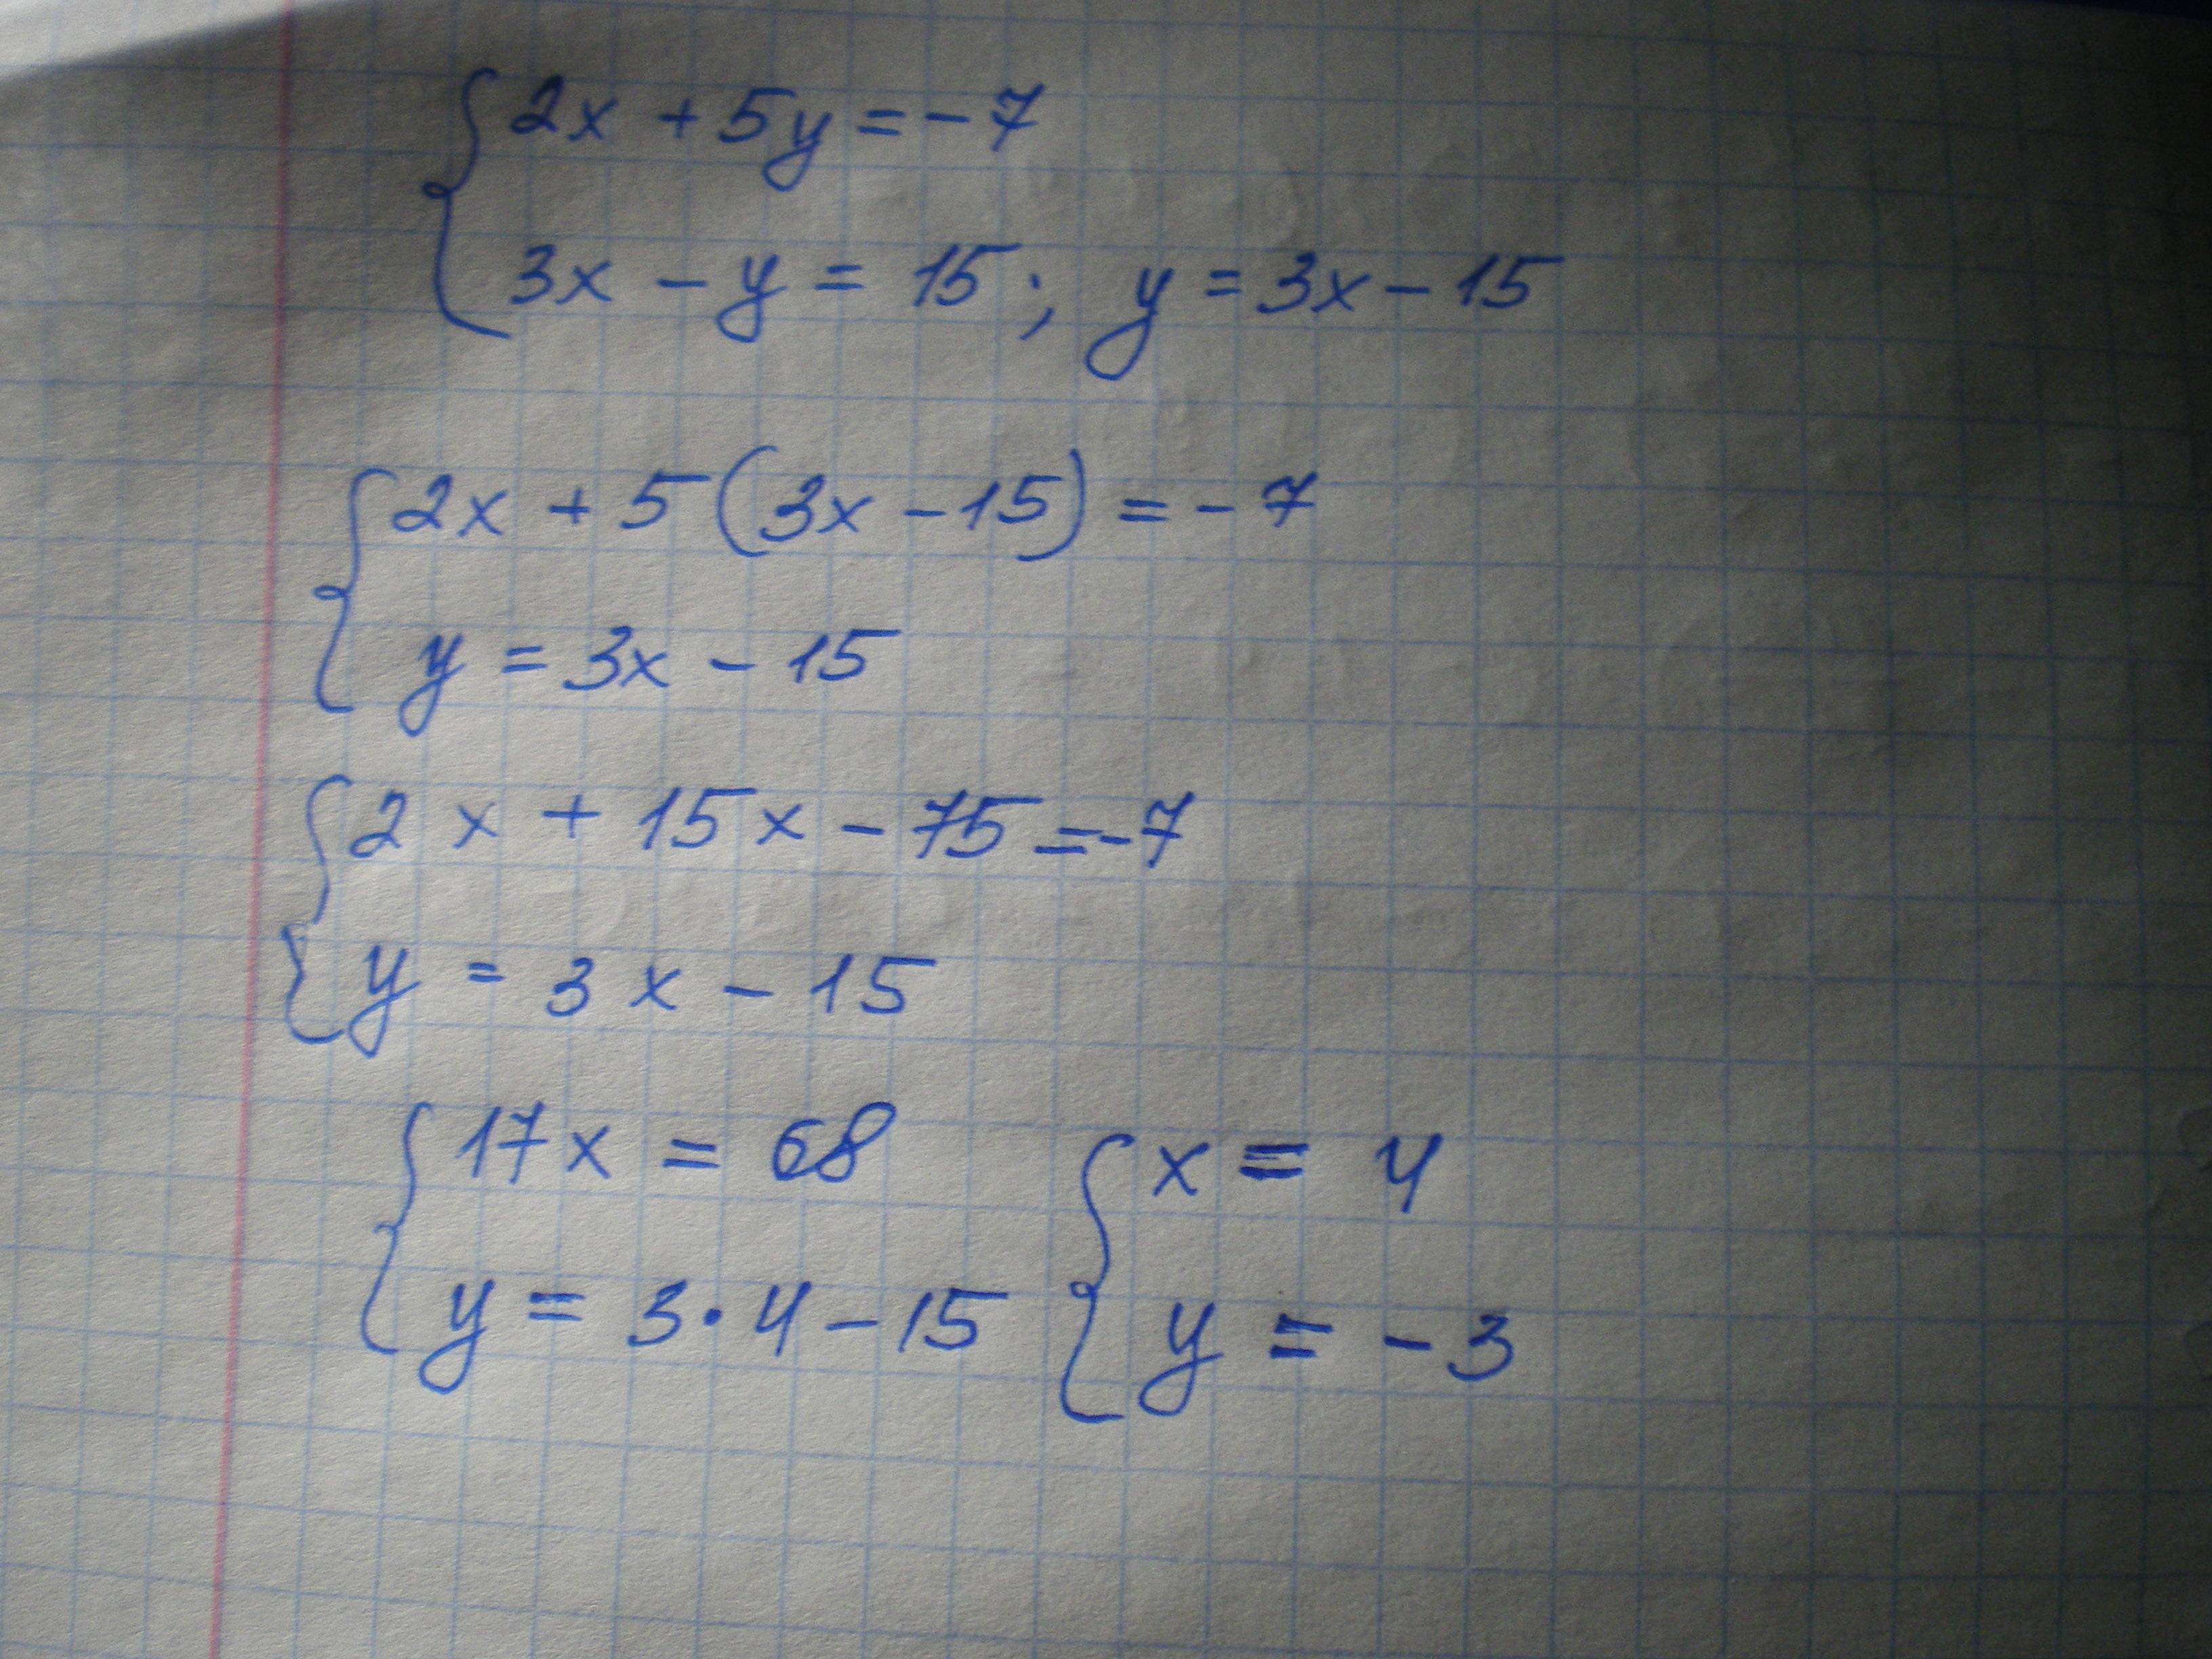 2x + 5y = -7
3x - y = 15; y = 3x - 15
2x + 5(3x - 15) = -7
y = 3x - 15
2x + 15x - 75 = -7
y = 3x - 15
17x = 68 x = 4
y = 3·4 - 15 y = -3